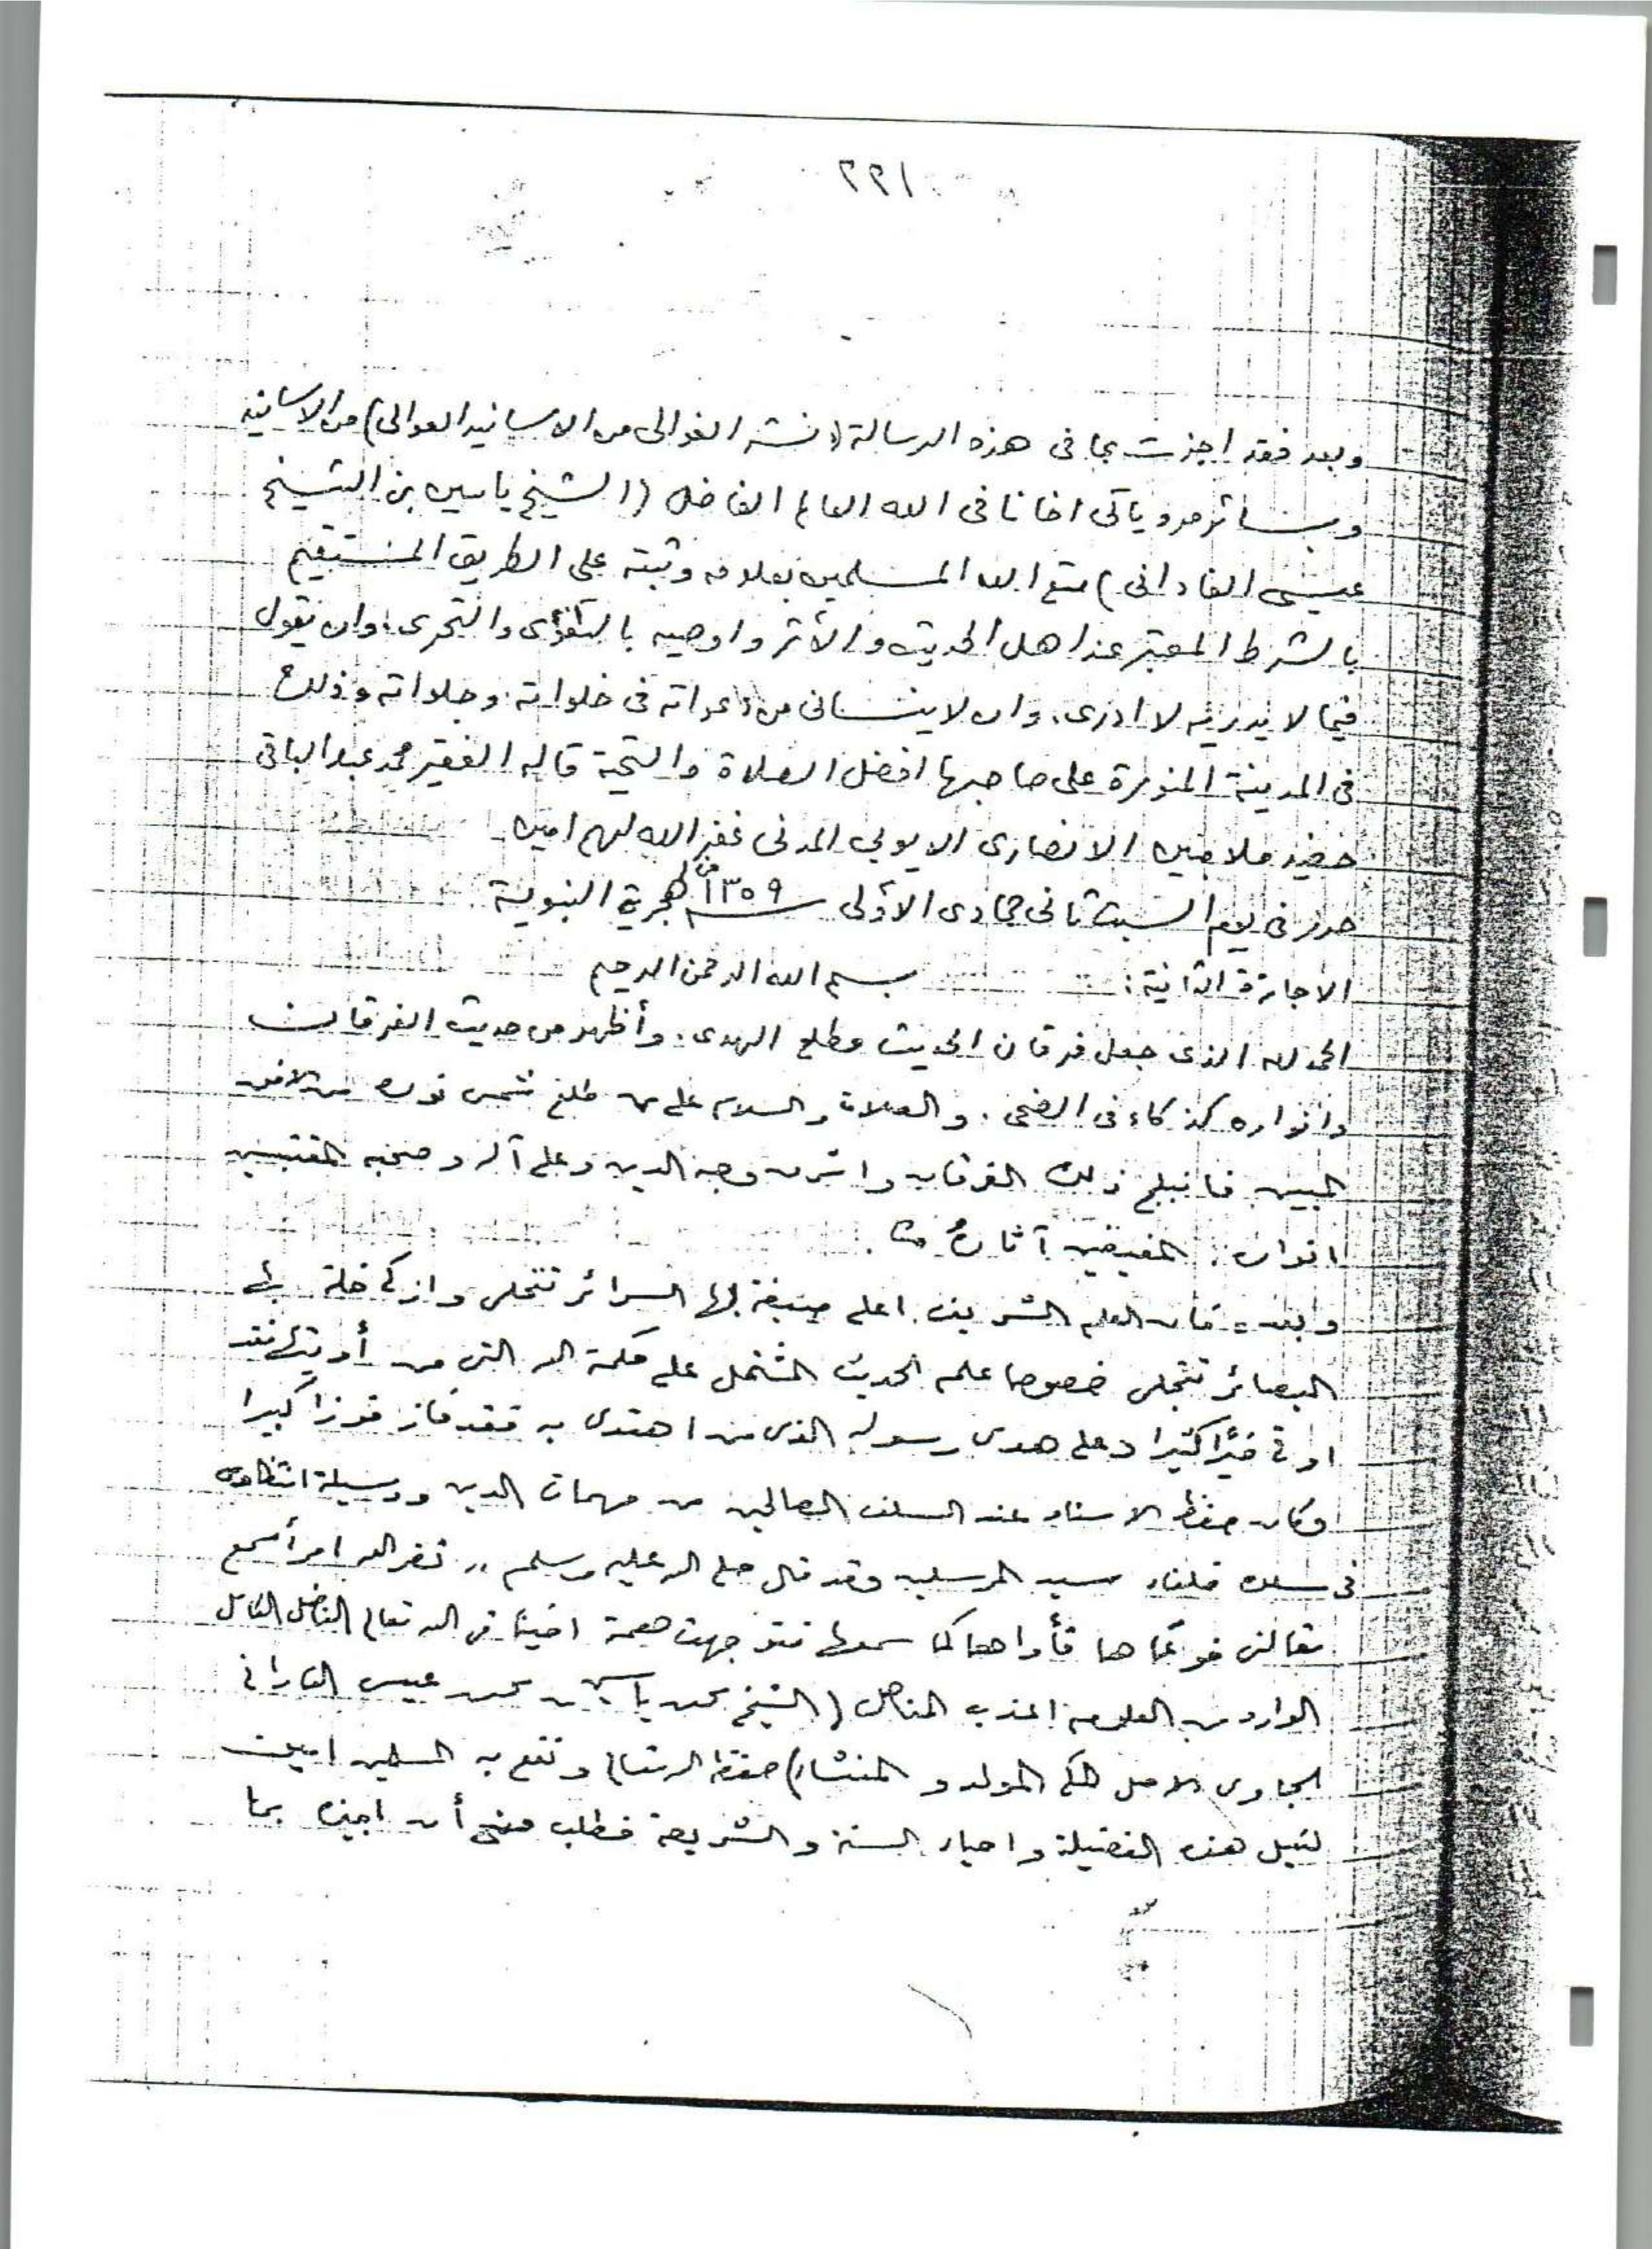 ٢٢١
وبعد فقد اجزت بما فى هذه الرسالة (نشر الغوالى من الاسانيد العوالى) من الاسانيد
وبسائر مروياتى اخانا فى الله العالم الفاضل (الشيخ ياسين بن الشيخ
عيسى الفادانى) متع الله المسلمين بعلومه وثبته على الطريق المستقيم
بالشرط المعتبر عند اهل الحديث والأثر واوصيه بالتقوى والتحرى، وان يقول
فيما لا يدريه لا ادرى، وان لا ينسانى من دعواته فى خلواته وجلواته وذلك
فى المدينة المنورة على صاحبها افضل الصلاة والتحية قاله الفقير محمد عبد الباقى
حفيد ملا مبين الانصارى الايوبي المدنى غفر الله لهم امين
حرر فى يوم السبت ثانى جمادى الأولى سنة ١٣٥٩ من الهجرية النبوية
الاجازة الثانية: بسم الله الرحمن الرحيم
الحمد لله الذى جعل فرقان الحديث مطلع الهدى، وأظهر من حديث الفرقان
وانواره كذكاء فى الضحى، والصلاة والسلام على من طلع شمس نوره من الافق
المبين فانبلج ذلك الفرقان واشرق وجه الدين وعلى آله وصحبه المقتبسين
انواره المقتفين آثاره
وبعد فان العلم الشريف اعلى صبغة بها السرائر تتحلى وازكى خلة بها
البصائر تتجلى خصوصا علم الحديث المشتمل على حكمة الله التى من أوتيها فقد
اوتي خيرًا كثيرا وعلى هدى رسوله الذى من اهتدى به فقد فاز فوزا كبيرا
وكان حفظ الاسناد عند السلف الصالحين من مهمات الدين ووسيلة انتظامه
فى سلك خلفاء سيد المرسلين وقد قال صلى الله عليه وسلم " نضر الله امرأ سمع
مقالتى فوعاها فأداها كما سمعها فتوجهت همة اخينا فى الله تعالى الفاضل الكامل
الوارد من العلوم اعذب المناهل (الشيخ محمد ياسين بن محمد عيسى الفادانى
الجاوى الاصل المكى المولد والمنشاء) حفظه الله تعالى ونفع به المسلمين امين
لنيل هذه الفضيلة واحياء السنة والشريعة فطلب منى أن اجيزه بما